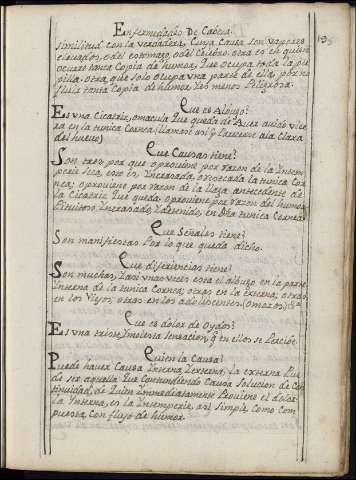 Enfermedades De Cabeza. 195
similitud con la verdadera, Cuya Causa son vapores
elevados, o del estomago, o del Celebro. otra es en quien
ocurre tanta Copia de humor, Que ocupa toda la pu
pilla. otra, que solo ocupa una parte de ella, por no
fluir tanta Copia de humor. i es menos Peligrosa.
Que es Albugo?
Es una Cicatriz, o macula Que queda de haver avido vlce
ra en la tunica Cornea; (llamase asi y Parecerse ala Clara
del huevo)
Que Causas tiene?
Son tres por que o proviene por razon de la Intem
perie seca, esto es, Incrasada, o resecada la tunica Cor
nea; o proviene por razon de la llaga antecedente de
la Cicatriz Que queda; o proviene por razon del humor
Pituitoso Incrasado, i detenido, en dha tunica Cornea.
Que Señales tiene?
Son manifiestas Por lo que queda dicho.
Que diferiencias tiene?
Son muchas, i asi unas veces esta el albugo, en la parte
Interna de la tunica Cornea; otras en la externa; otras
en los Viejos, otras en los adolescentes. (o mozos)
Que es dolor de Oydos?
Es una triste, i molesta sensacion, q en ellos se Percive
Quien la Causa?
Puede haver Causa Interna, i externa, la externa Pue
de ser aquella Que Contundiendo Causa Solucion de Con
tinuidad, de Quien Immediatamente Proviene el dolor.
la Interna, es la Intemperie, asi simple, Como com
puesta, con flujo de humor.